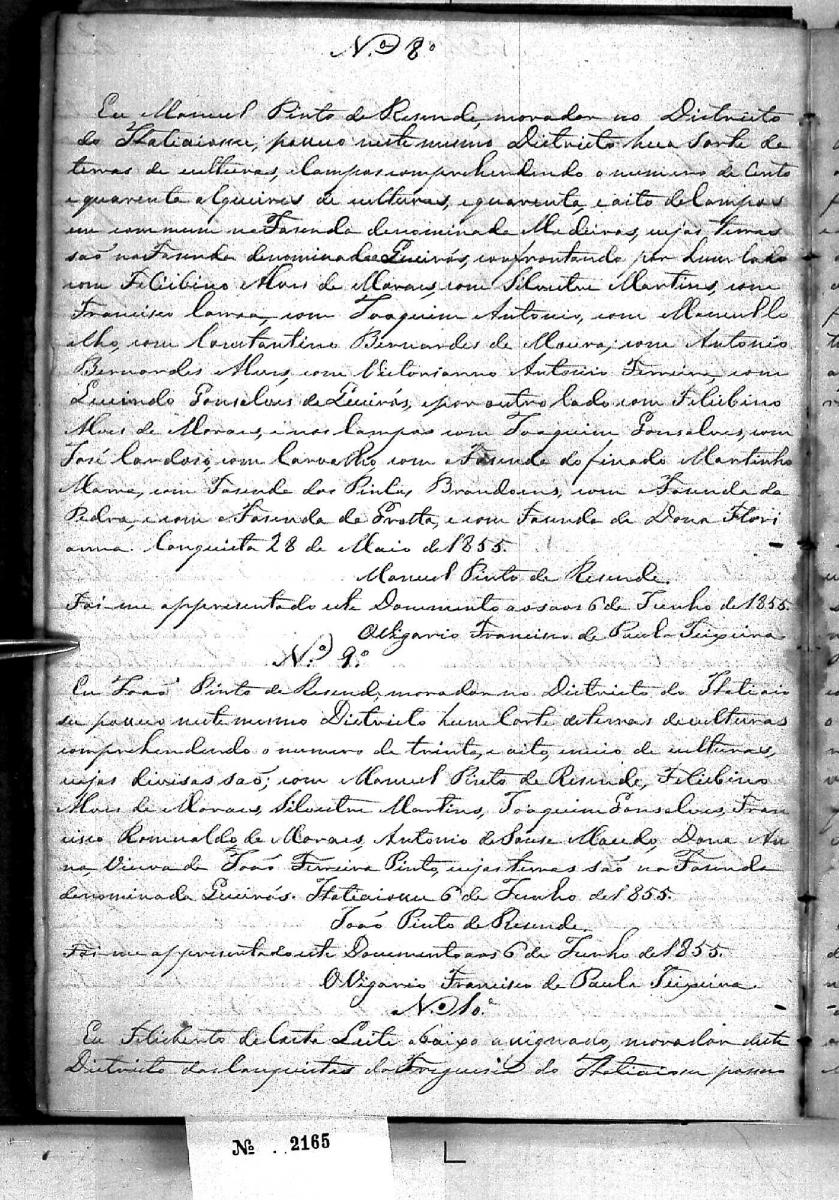 N.º 8º
Eu Manuel Pinto de Resende, morador no Districto
do Itatiaiossu, possuo neste mesmo Districto hua Sorte de
terras de culturas, e Campos comprehendendo o numero de Cento
e quarenta alqueires de culturas, e quarenta, e oito de Campos
em commum na Fasenda denominada Medeiros, cujas terras
são na Fasenda denominada Queirós, confrontando por hum lado
com Felisbino Alves de Moraes, com Silvestre Martins, com
Francisco com Joaquim Antonio, com Manuel Co
elho, com Constantino Bernardes de Moura, com Antonio
Bernardes Alves, com Victorianno Antonio Ferreira, com
Lucindo Gonsalves de Queirós, e por outro lado com Felisbino
Alves de Moraes, e nos Campos com Joaquim Gonsalves, com
José Cardoso, com Carvalho, com a Fasenda do finado Martinho
com Fasenda dos Pintos Brandoens, com a Fasenda da
Pedra, e com a Fasenda da Grotta, e com Fasenda de Dona Flori
anna. Conquista 28 de Maio de 1855.
Manuel Pinto de Resende.
Foi me appresentado este Documento aos aos 6 de Junho de 1855.
O Vigario Francisco de Paula Teixeira
N.º 9.º
Eu João Pinto de Resende, morador no Districto do Itatiaio
su possuo neste mesmo Districto hum Corte de terras de culturas
comprehendendo o numero de trinta, e oito, e meio de culturas,
cujas divisas são; com Manuel Pinto de Resende, Felisbino
Alves de Moraes, Silvestre Martins, Joaquim Gonsalves, Fran
cisco Romualdo de Moraes, Antonio de Sousa Macedo, Dona An
na, Viuva de João Ferreira Pinto, cujas terras são na Fasenda
denominada Queirós. Itatiaiossu 6 de Junho de 1855.
João Pinto de Resende.
Foi me appresentado este Documento aos 6 de Junho de 1855.
O Vigario Francisco de Paula Teixeira.
N. 10º
Eu Felisberto da Costa Leite abaixo assignado, morador deste
Districto das Conquistas da Freguesia do Itatiaiossu possuo
Nº 2165